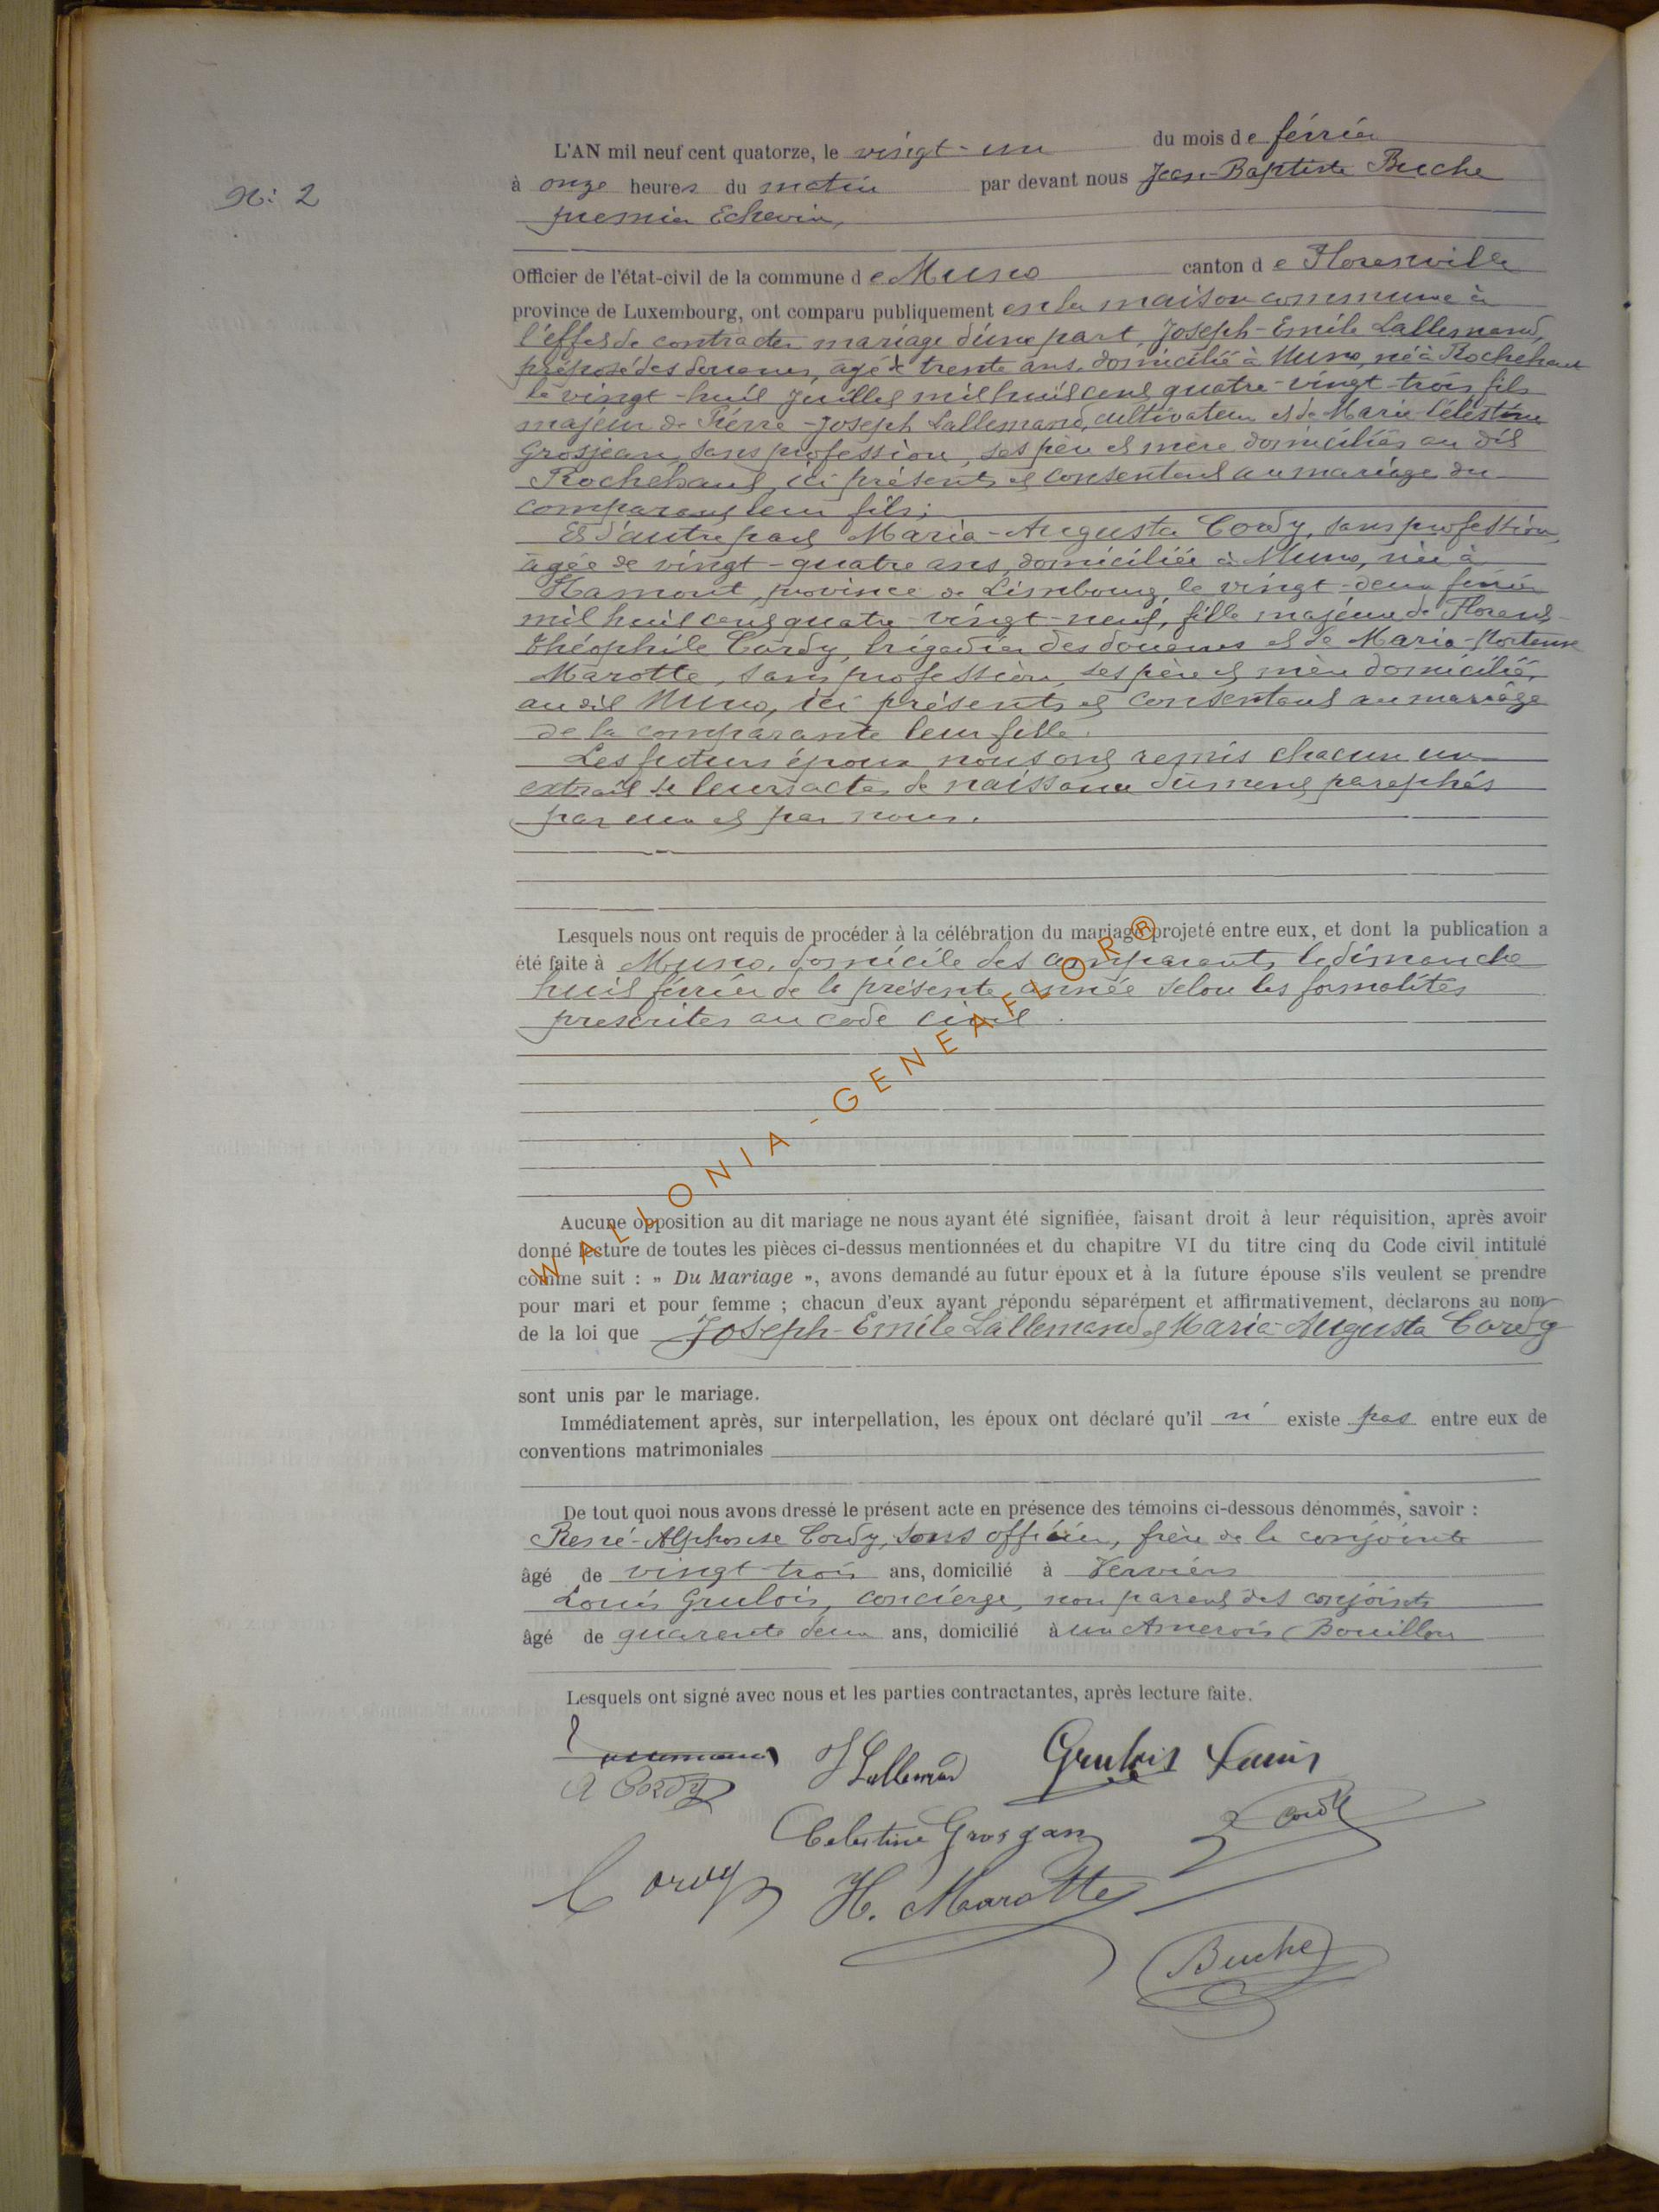 N: 2
L'AN mil neuf cent quatorze, le vingt-un du mois de février
à onze heures du matin par devant nous Jean-Baptiste Buche
premier Echevin,
Officier de l'état-civil de la commune de Muno canton de Florenville
province de Luxembourg, ont comparu publiquement en la maison commune à
l'effet de contracter mariage d'une part, Joseph-Emile Lallemand,
préposé des douanes, âgé de trente ans, domicilié à Muno, né à Rochehaut
le vingt-huit Juillet mil huit cent quatre-vingt-trois, fils
majeur de Pierre-Joseph Lallemand, cultivateur et de Marie-Célestine
Grosjean, sans profession, ses père et mère domiciliés au dit
Rochehaut, ici présents et consentant au mariage du
comparant leur fils;
Et d'autre part Maria-Augusta Cordy, sans profession,
âgée de vingt-quatre ans, domiciliée à Muno, née à
Hamont, province de Limbourg, le vingt-deux février
mil huit cent quatre-vingt-neuf, fille majeure de Florent-
Théophile Cordy, brigadier des douanes et de Maria-Hortense
Marotte, sans profession, ses père et mère domiciliés
au dit Muno, ici présents et consentant au mariage
de la comparante leur fille.
Les futurs époux nous ont remis chacun un
extrait de leurs actes de naissance dûment paraphés
par eux et par nous.
Lesquels nous ont requis de procéder à la célébration du mariage projeté entre eux, et dont la publication a
été faite à Muno, domicile des comparants, le dimanche
huit février de la présente année selon les formalités
prescrites au code civil.
WALLONIA-GENEAFLOR®
Aucune opposition au dit mariage ne nous ayant été signifiée, faisant droit à leur réquisition, après avoir
donné lecture de toutes les pièces ci-dessus mentionnées et du chapitre VI du titre cinq du Code civil intitulé
comme suit : » Du Mariage », avons demandé au futur époux et à la future épouse s'ils veulent se prendre
pour mari et pour femme ; chacun d'eux ayant répondu séparément et affirmativement, déclarons au nom
de la loi que Joseph-Emile Lallemand et Maria-Augusta Cordy
sont unis par le mariage.
Immédiatement après, sur interpellation, les époux ont déclaré qu'il n' existe pas entre eux de
conventions matrimoniales
De tout quoi nous avons dressé le présent acte en présence des témoins ci-dessous dénommés, savoir :
René-Alphonse Cordy, sous officier, frère de la conjointe
âgé de vingt-trois ans, domicilié à Verviers
Louis Grulois, concierge, non parent des conjoints
âgé de quarante deux ans, domicilié à un Amerois (Bouillon
Lesquels ont signé avec nous et les parties contractantes, après lecture faite.
Lallemand J Lallemand Grulois Louis
A Cordy
Celestine Grosjean Cordy
Cordy H. Marotte
Buche